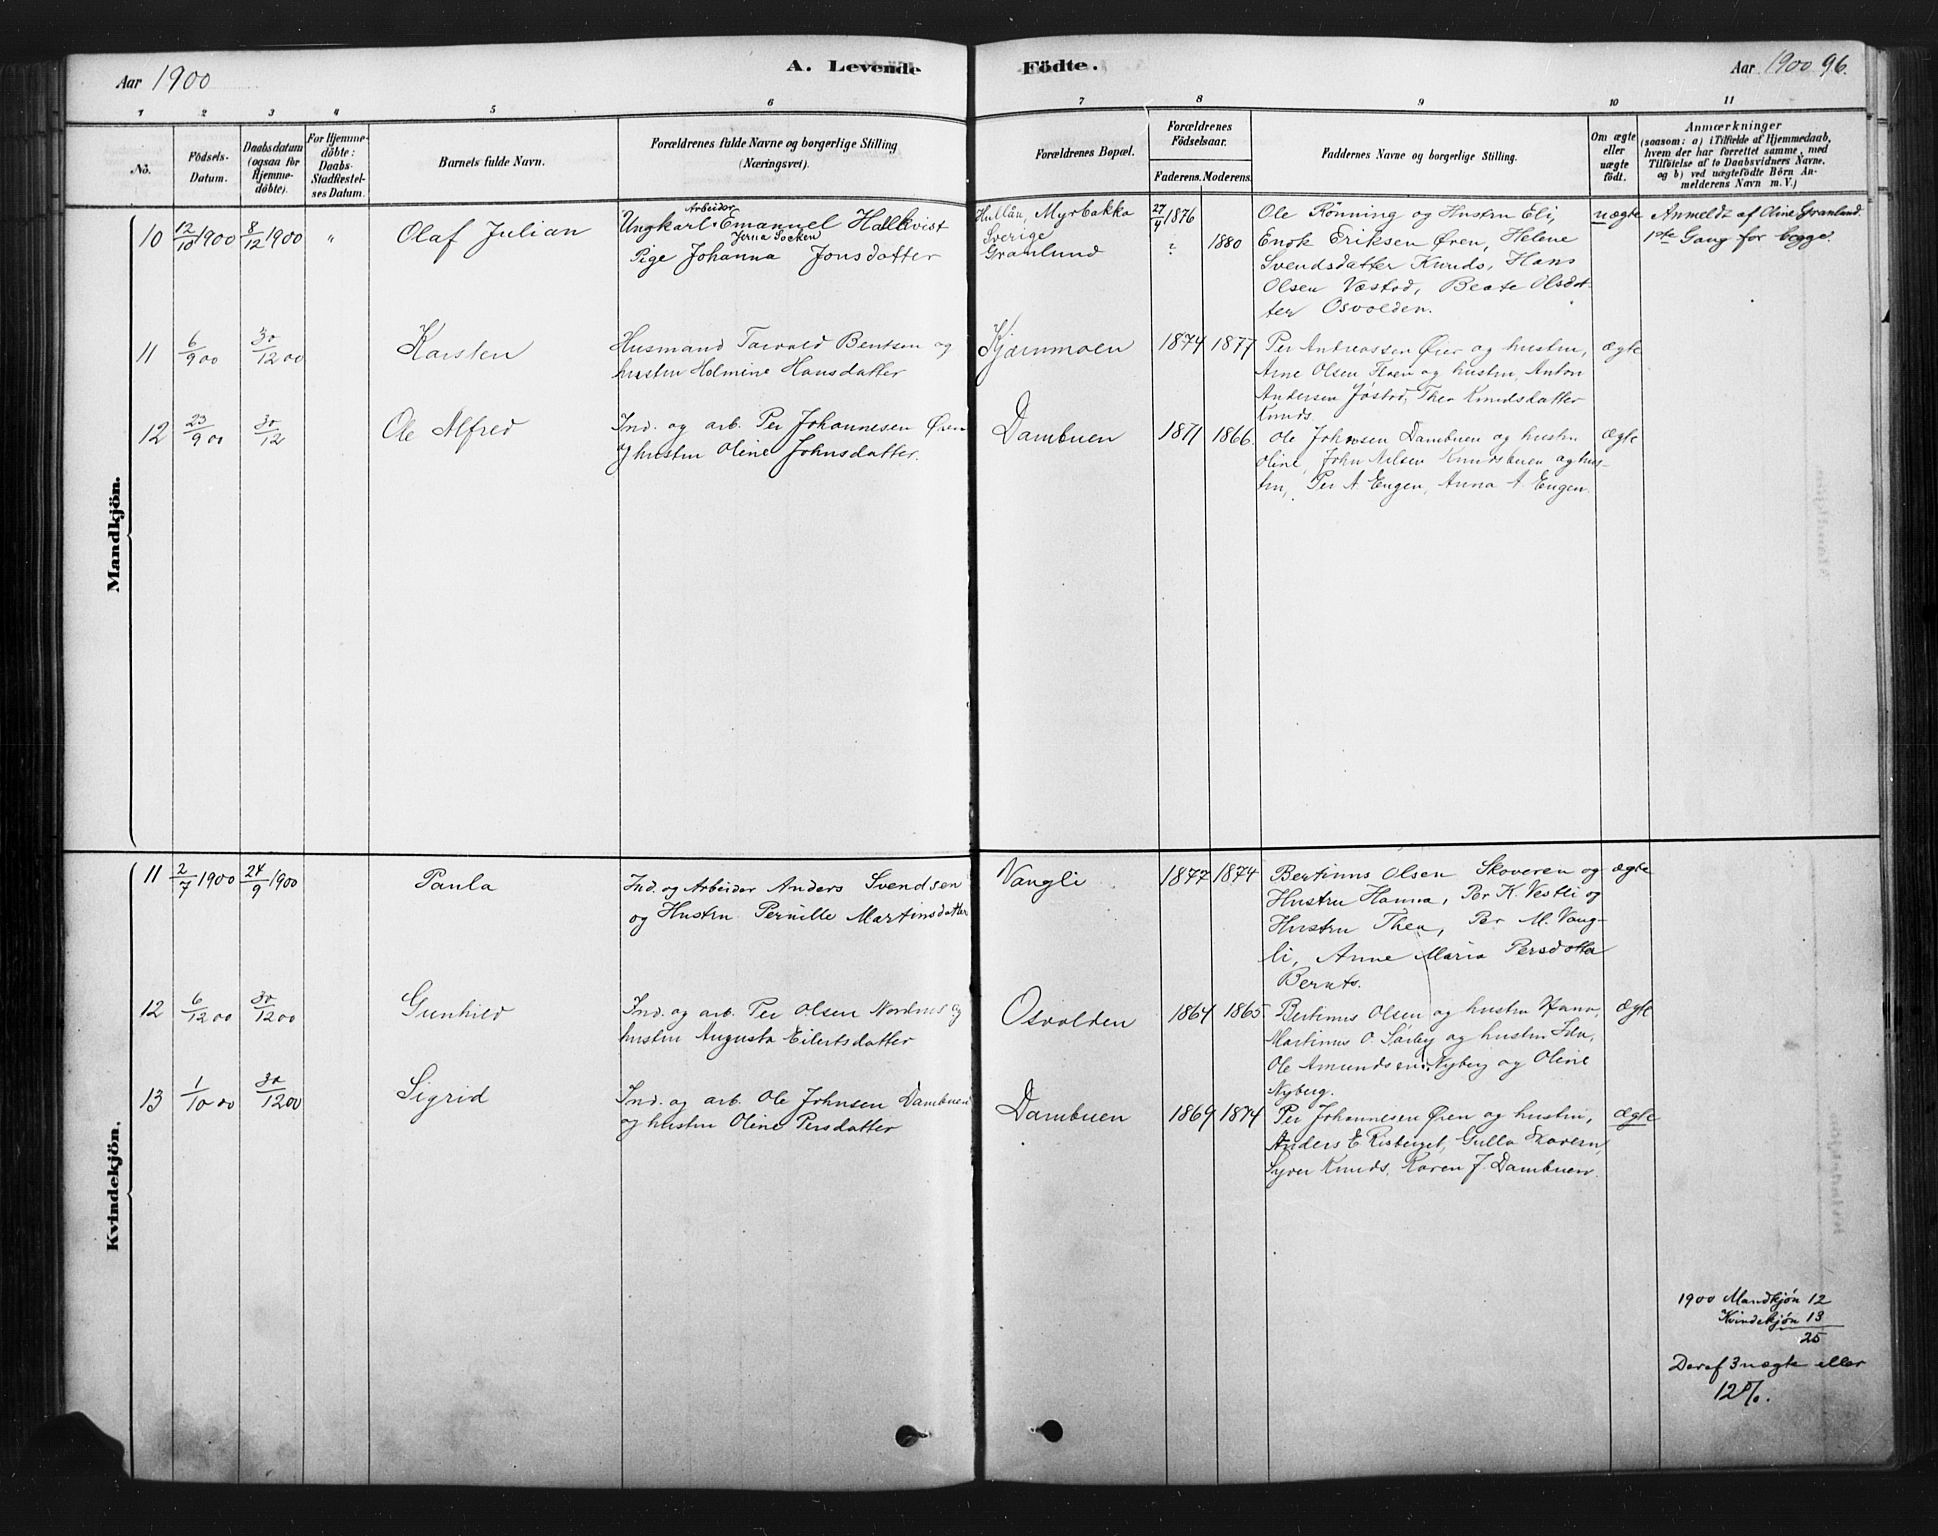 Aar 1900
A. Levende
Födte.
Aar 1900 96.
1 2 3 4 5 6 7 8 9 10 11
No.
Födsels-
Datum.
Daabsdatum
(ogsaa for
Hjemme-
döbte).
For Hjemme-
döbte:
Daabs-
Stadfæstel-
ses Datum.
Barnets fulde Navn.
Forældrenes fulde Navne og borgerlige Stilling
(Næringsvei).
Forældrenes Bopæl.
Forældrenes
Födselsaar.
Faderens. Moderens.
Faddernes Navne og borgerlige Stilling.
Om ægte
eller
uægte
födt.
Anmærkninger
(saasom: a) i Tilfælde af Hjemmedaab,
hvem der har forrettet samme, med
Tilföielse af to Daabsvidners Navne,
og b) ved uægtefödte Börn An-
melderens Navn m. V.)
Mandkjön.
10 12/10 1900 8/12 1900 " Olaf Julian
Arbeider
Ungkarl Emanuel Hallkvist
Jerna Socken
Pige Johanna Jonsdatter
Hullån, Myrbakka
Sverige
Granlund
27/4 1876
? 1880
Ole Rønning og Hustru Eli,
Enok Eriksen Øren, Helene
Svendsdatter Knuds, Hans
Olsen Væstad, Beate Olsdat-
ter Osvolden.
uægte
Anmeldt af Oline Granlund.
1ste Gang for begge.
11 6/9 00 30/12 00 Karsten
Husmand Torvald Bentsen og
hustru Holmine Hansdatter
Kjernmoen
1874 1877
Per Andreassen Øier og hustru,
Arne Olsen Floen og hustru, Anton
Andersen Jøstad, Thea Knudsdatter
Knuds.
ægte
12 23/9 00 30/12 Ole Alfred
Ind. og arb. Per Johannesen Øren
og hustru Oline Johnsdatter.
Dambuen
1871 1866
Ole Johnsen Dambuen og hustru
Oline, John Nilsen Knudsbuen og hus-
tru, Per A Engen, Anna A. Engen.
ægte
Kvindekjön.
11 2/7 1900 24/9 1900 Paula
Ind. og Arbeider Anders Svendsen
og Hustru Pernille Martinsdatter
Vangli
1877 1874
Bertinus Olsen Skoveren og
Hustru Hanna, Per K. Vestli og
Hustru Thea, Per M. Vang-
li, Anne Maria Persdatter
Bernts.
ægte
12 6/12 00 30/12 00 Gunhild
Ind. og arb. Per Olsen Nordnes og
hustru Augusta Eilertsdatter
Osvolden
1864 1865
Bertinus Olsen og hustru Hana,
Martinus O. Sørby og hustru Ida,
Ole Amundsen Nyberg og Oline
Nyberg.
ægte
13 1/10 00 30/12 00 Sigrid
Ind. og arb. Ole Johnsen Dambuen
og hustru Oline Persdatter
Dambuen
1869 1874
Per Johannesen Øren og hustru,
Anders E. Risberget, Gulla Skovern,
Syver Knuds, Karen J. Dambuen.
ægte
1900 Mandkjøn 12
Kvindekjøn 13
25
Deraf 3 uægte eller
12%.